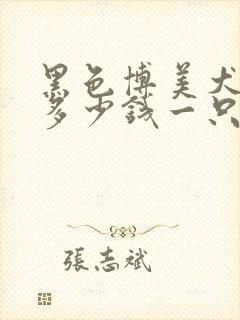 黑色博美犬
多少錢一只
張志斌